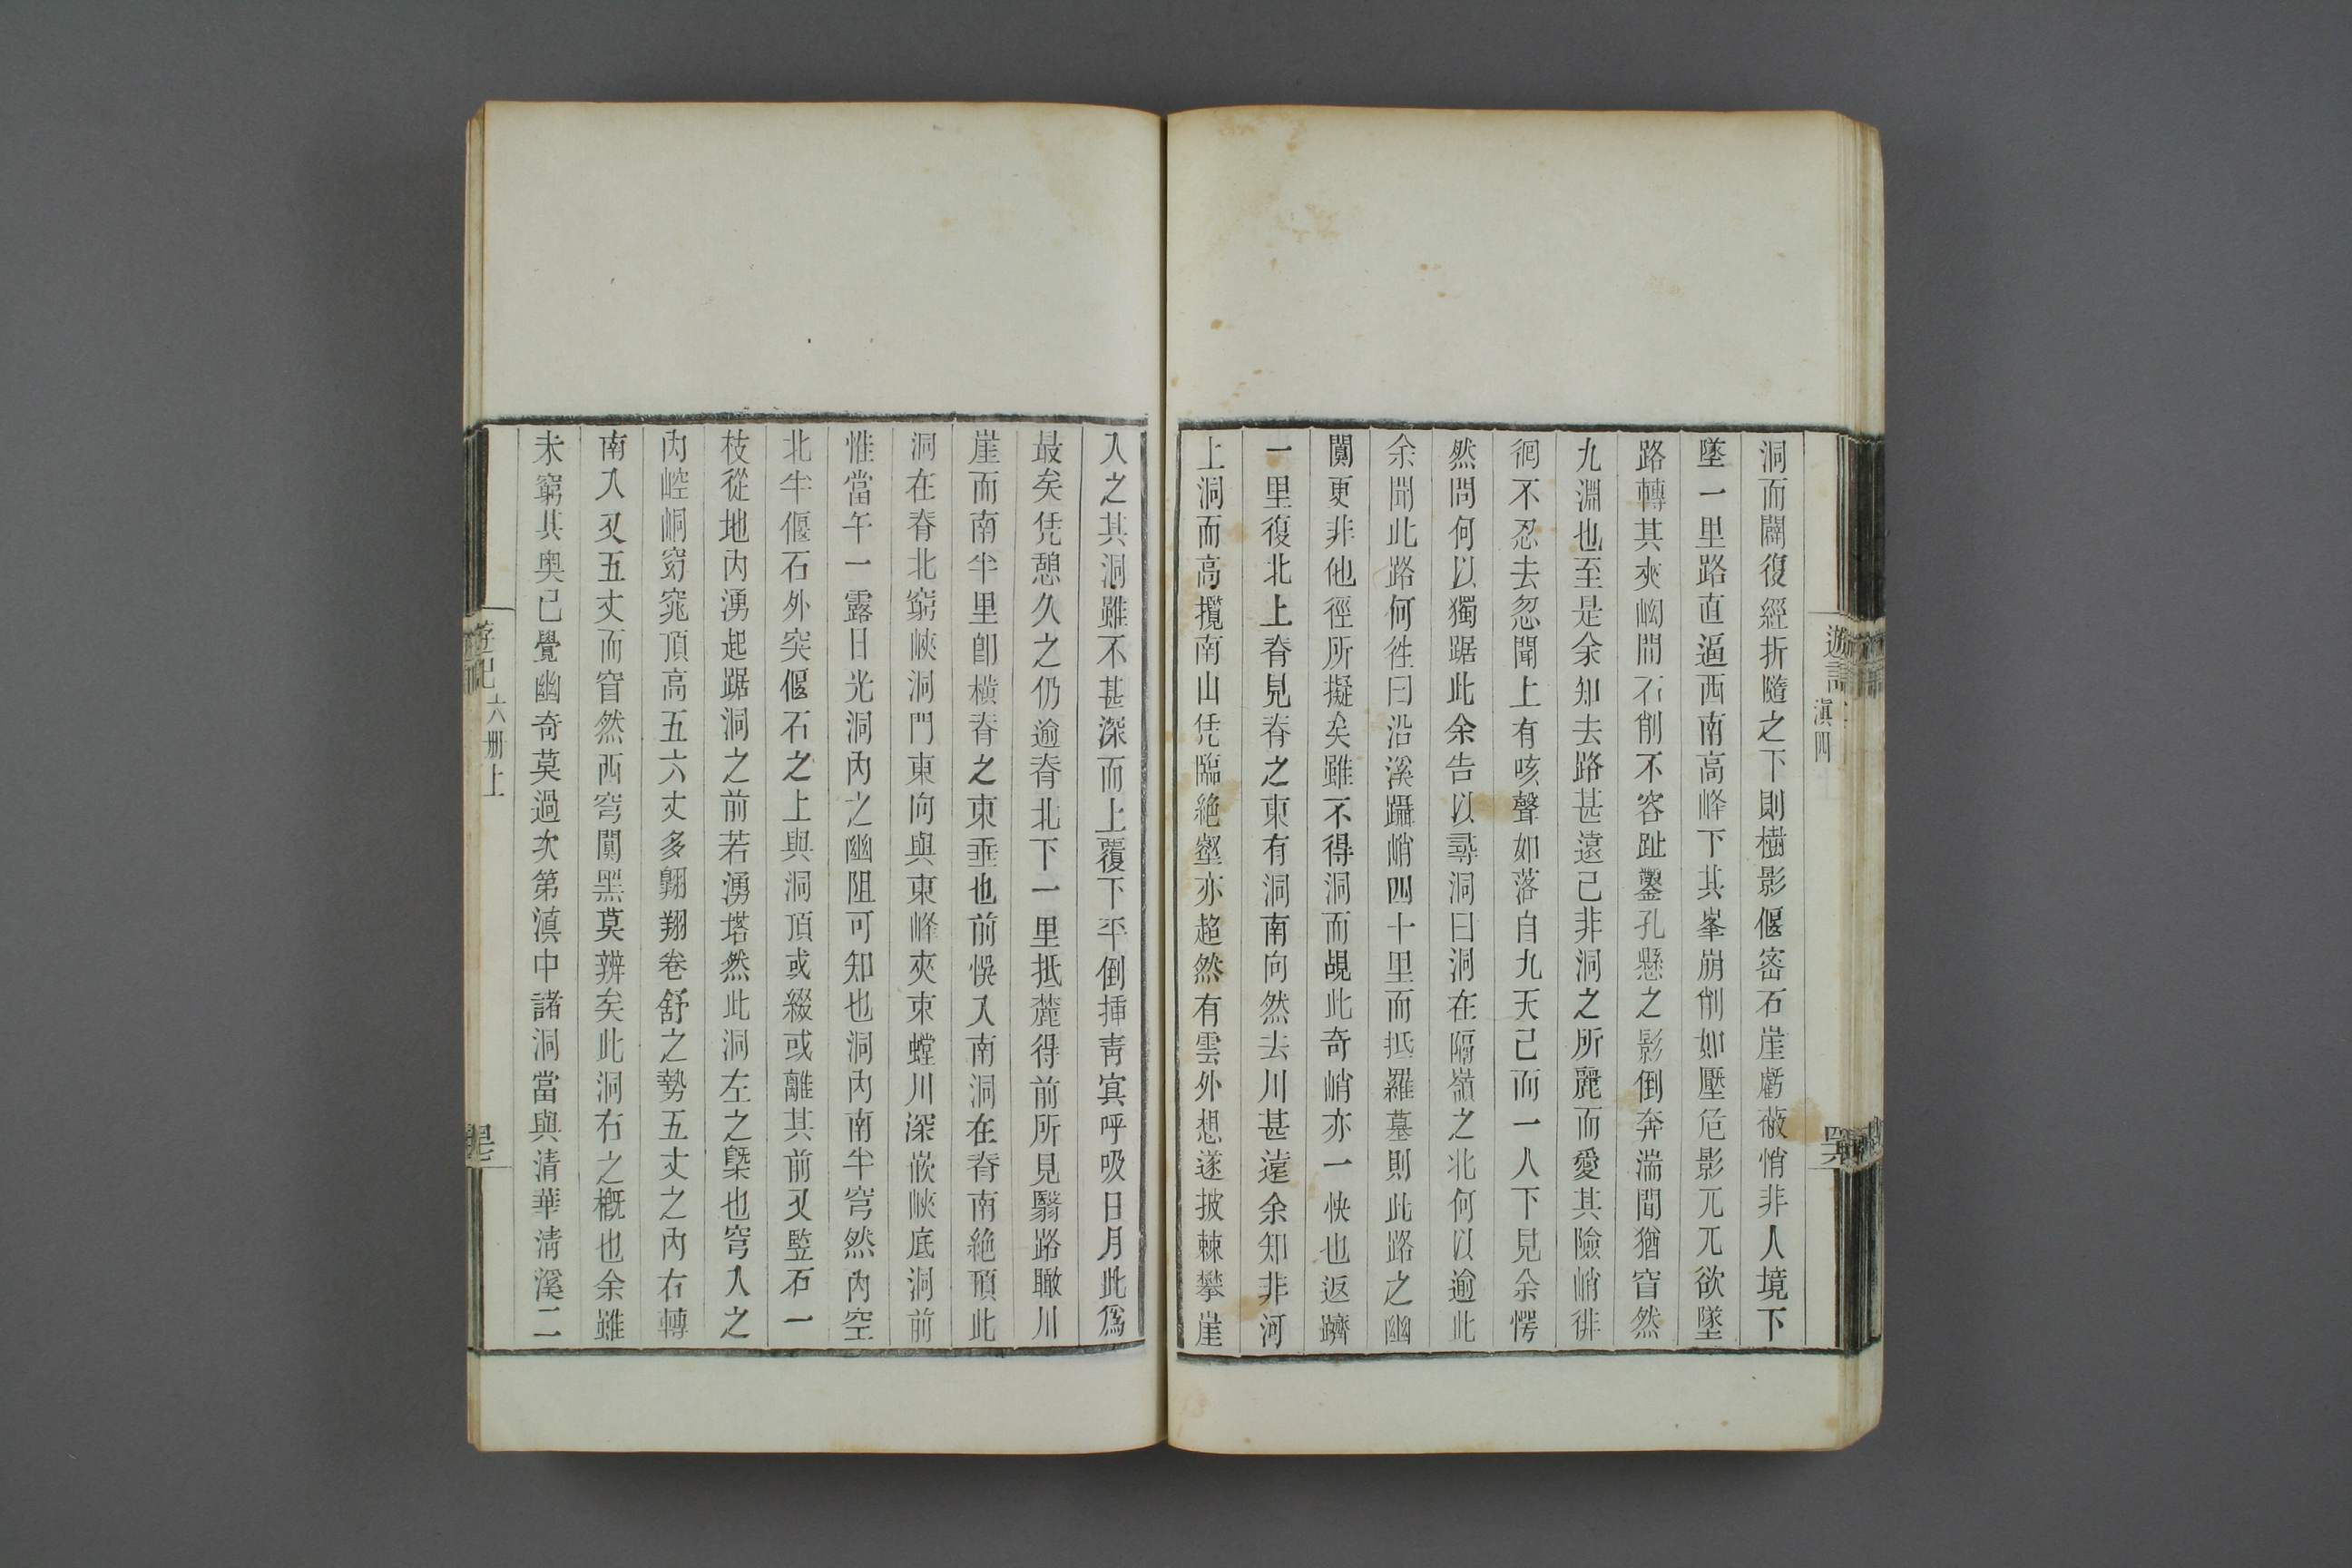 洞而闢復經折隨之下則樹影偃密石崖虧蔽悄非人境下
墜一里路直逼西南高峰下其峯崩削如壓危影兀兀欲墜
路轉其夾㘭間石削不容趾鑿孔懸之影倒奔湍間猶窅然
九淵也至是余知去路甚遠已非洞之所麗而愛其險峭徘
徊不忍去忽聞上有咳聲如落自九天已而一人下見余愕
然問何以獨踞此余告以尋洞曰洞在隔嶺之北何以逾此
余聞此路何徃曰沿溪躡峭四十里而抵羅墓則此路之幽
闃更非他徑所擬矣雖不得洞而覘此奇峭亦一快也返躋
一里復北上脊見脊之東有洞南向然去川甚遠余知非河
上洞而高攬南山凭臨絶壑亦超然有雲外想遂披棘攀崖
入之其洞雖不甚深而上覆下平倒揷靑㝠呼吸日月此爲
最矣凭憩久之仍逾脊北下一里抵麓得前所見翳路瞰川
崖而南半里卽橫脊之東垂也前悞入南洞在脊南絶頂此
洞在脊北窮峽洞門東向與東峰夾束螳川深嵌峽底洞前
惟當午一露日光洞內之幽阻可知也洞內南半穹然內空
北半偃石外突偃石之上與洞頂或綴或離其前又監石一
枝從地內湧起踞洞之前若湧塔然此洞左之槩也穹入之
內崆峒窈窕頂高五六丈多翱翔卷舒之勢五丈之內右轉
南入又五丈而窅然西穹闃黑莫辨矣此洞右之槪也余雖
未窮其奥已覺幽奇莫過次第滇中諸洞當與清華清溪二
遊記
滇四
遊記
六册上